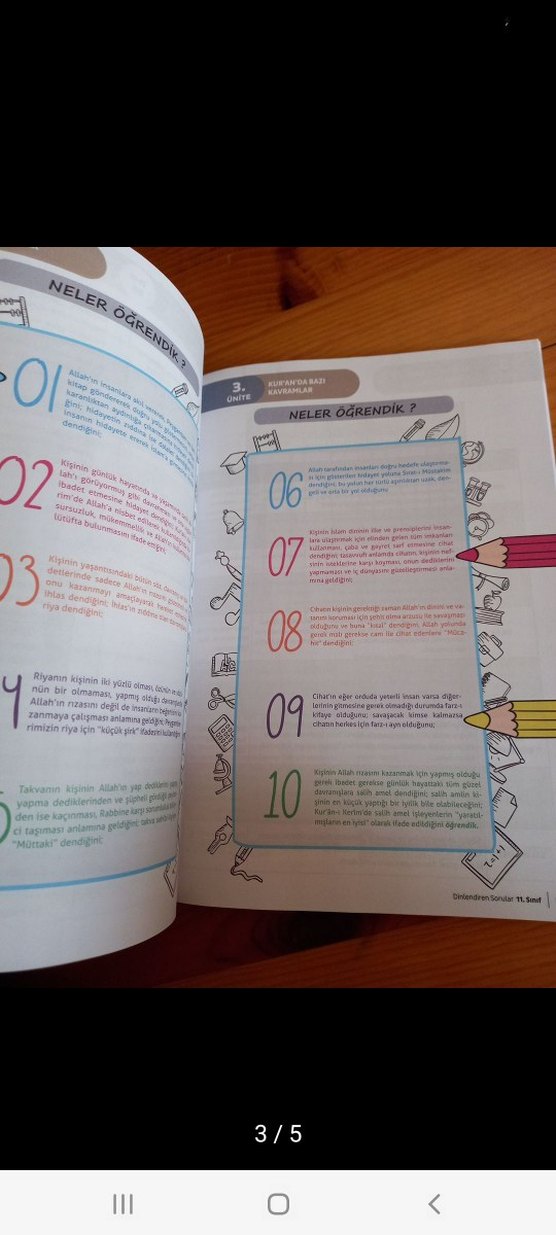 NELER ÖĞRENDİK ?
01
Allah'ın insanlara akıl vererek,
kitap göndererek doğru yolu
karanlıktan aydınlığa
ğini; hidayetin zıddına ise
insanın hidayete ererek
dendiğini;
02
Kişinin günlük hayatında ve
lah'ı görüyormuş gibi
ibadet etmesine
rim'de Allah'a nisbet edilerek
sursuzluk, mükemmellik ve
lütüfta bulunmasını ifade ettiğini;
03
Kişinin yaşantısındaki bütün söz,
detlerinde sadece Allah'ın rızasını
onu kazanmayı amaçlayarak hareket
ihlas dendiğini; ihlas'ın zıddına
riya dendiğini;
Riyanın kişinin iki yüzlü olması,
nün bir olmaması, yapmış olduğu
Allah'ın rızasını değil de insanların
zanmaya çalışması anlamına geldiğini;
rimizin riya için "küçük şirk" ifadesini
Takvanın kişinin Allah'ın yap dediklerini
yapma dediklerinden ve şüpheli
den ise kaçınması, Rabbine karşı
ci taşıması anlamına geldiğini; takva
"Müttaki" dendiğini;
3.
ÜNİTE
KUR'AN'DA BAZI
KAVRAMLAR
NELER ÖĞRENDİK ?
06
Allah tarafından insanları doğru hedefe ulaştırma-
sı için gösterilen hidayet yoluna Sırat-ı Müstakim
dendiğini; bu yolun her türlü aşırılıktan uzak, den-
geli ve orta bir yol olduğunu;
07
Kişinin İslam dininin ilke ve prensiplerini insan-
lara ulaştırmak için elinden gelen tüm imkanları
kullanması, çaba ve gayret sarf etmesine cihat
dendiğini; tasavvufi anlamda cihatın, kişinin nef-
sinin isteklerine karşı koyması, onun dediklerini
yapmaması ve iç dünyasını güzelleştirmesi anla-
mına geldiğini;
08
Cihatın kişinin gerektiği zaman Allah'ın dinini ve va-
tanını koruması için şehit olma arzusu ile savaşması
olduğunu ve buna "kıtal" dendiğini, Allah yolunda
gerek malı gerekse canı ile cihat edenlere "Müca-
hit" dendiğini;
09
Cihat'ın eğer orduda yeterli insan varsa diğer-
lerinin gitmesine gerek olmadığı durumda farz-ı
kifaye olduğunu; savaşacak kimse kalmazsa
cihatın herkes için farz-ı ayn olduğunu;
10
Kişinin Allah rızasını kazanmak için yapmış olduğu
gerek ibadet gerekse günlük hayattaki tüm güzel
davranışlara salih amel dendiğini; salih amlin ki-
şinin en küçük yaptığı bir iyilik bile olabileceğini;
Kur'ân-ı Kerim'de salih amel işleyenlerin "yaratıl-
mışların en iyisi" olarak ifade edildiğini öğrendik.
Dinlendiren Sorular 11. Sınıf
3 / 5